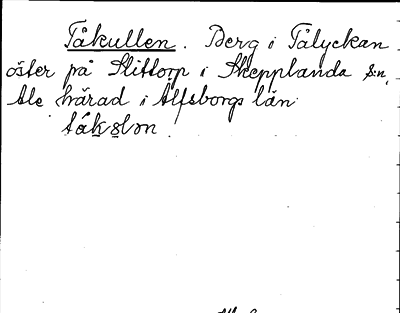 Tåkullen. Berg i Tålyckan
öster på Slittorp i Skepplanda s:n,
Ale härad i Älfsborgs län